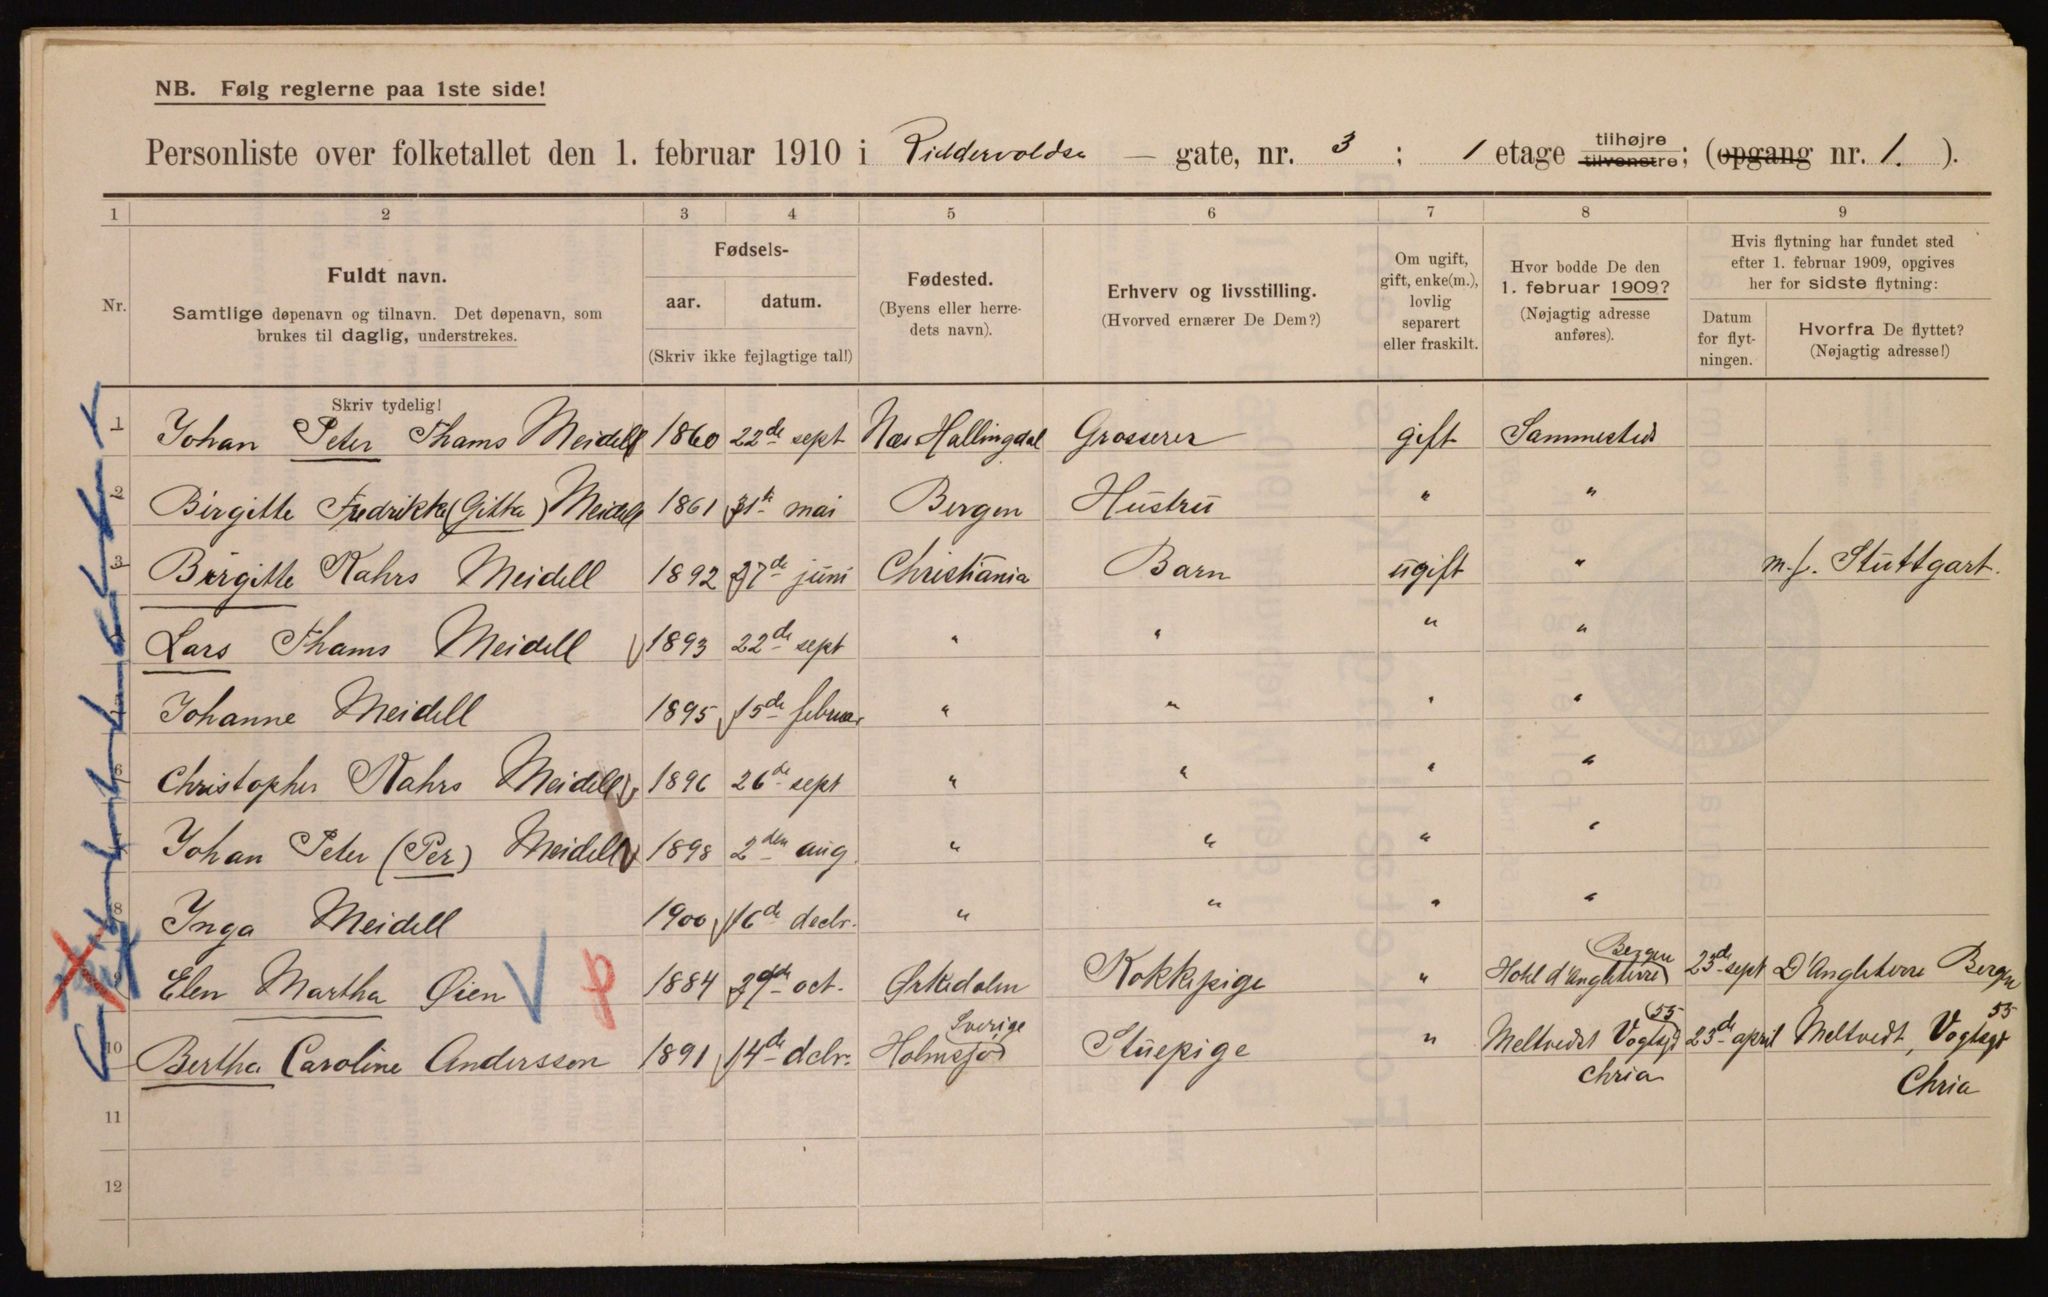 NB. Følg reglerne paa 1ste side!
Personliste over folketallet den 1. februar 1910 i Riddervoldsa — gate, nr. 3 ; 1 etage tilhøjre tilvenstre; (opgang nr. 1. ).
1 2 3 4 5 6 7 8 9
Nr.
Fuldt navn.
Samtlige døpenavn og tilnavn. Det døpenavn, som
brukes til daglig, understrekes.
Fødsels-
aar. datum.
(Skriv ikke fejlagtige tal!)
Fødested.
(Byens eller herre-
dets navn).
Erhverv og livsstilling.
(Hvorved ernærer De Dem?)
Om ugift,
gift, enke(m.),
lovlig
separert
eller fraskilt.
Hvor bodde De den
1. februar 1909?
(Nøjagtig adresse
anføres).
Hvis flytning har fundet sted
efter 1. februar 1909, opgives
her for sidste flytning:
Datum
for flyt-
ningen.
Hvorfra De flyttet?
(Nøjagtig adresse!)
Skriv tydelig!
1 Johan Peter Thams Meidell 1860 22de sept Næs Hallingdal Grosserer gift Sammesteds
2 Birgitte Fredrikke (Gitta) Meidell 1861 31te mai Bergen Hustru " "
3 Birgitte Kahrs Meidell 1892 27de juni Christiania Barn ugift " m. f. Stuttgart.
Lars Thams Meidell 1893 22de sept " " " "
Johanne Meidell 1895 15de februar " " " "
6 Christopher Kahrs Meidell 1896 26de sept " " " "
Johan Peter (Per) Meidell 1898 2den aug. " " " "
8 Inga Meidell 1900 16de decbr. " " " "
9 Elen Martha Øien 1884 29de oct. Ørkedalen Kokkepige " Hotel d'Angleterre Bergen 23de sept D'Angleterre Bergen
10 Bertha Caroline Andersson 1891 14de decbr. Holmsjød Sverige Stuepige " Meltvedt Vogtsgt 55 Chria 23de april Meltvedt, Vogtsgt 55
Chria
11
12